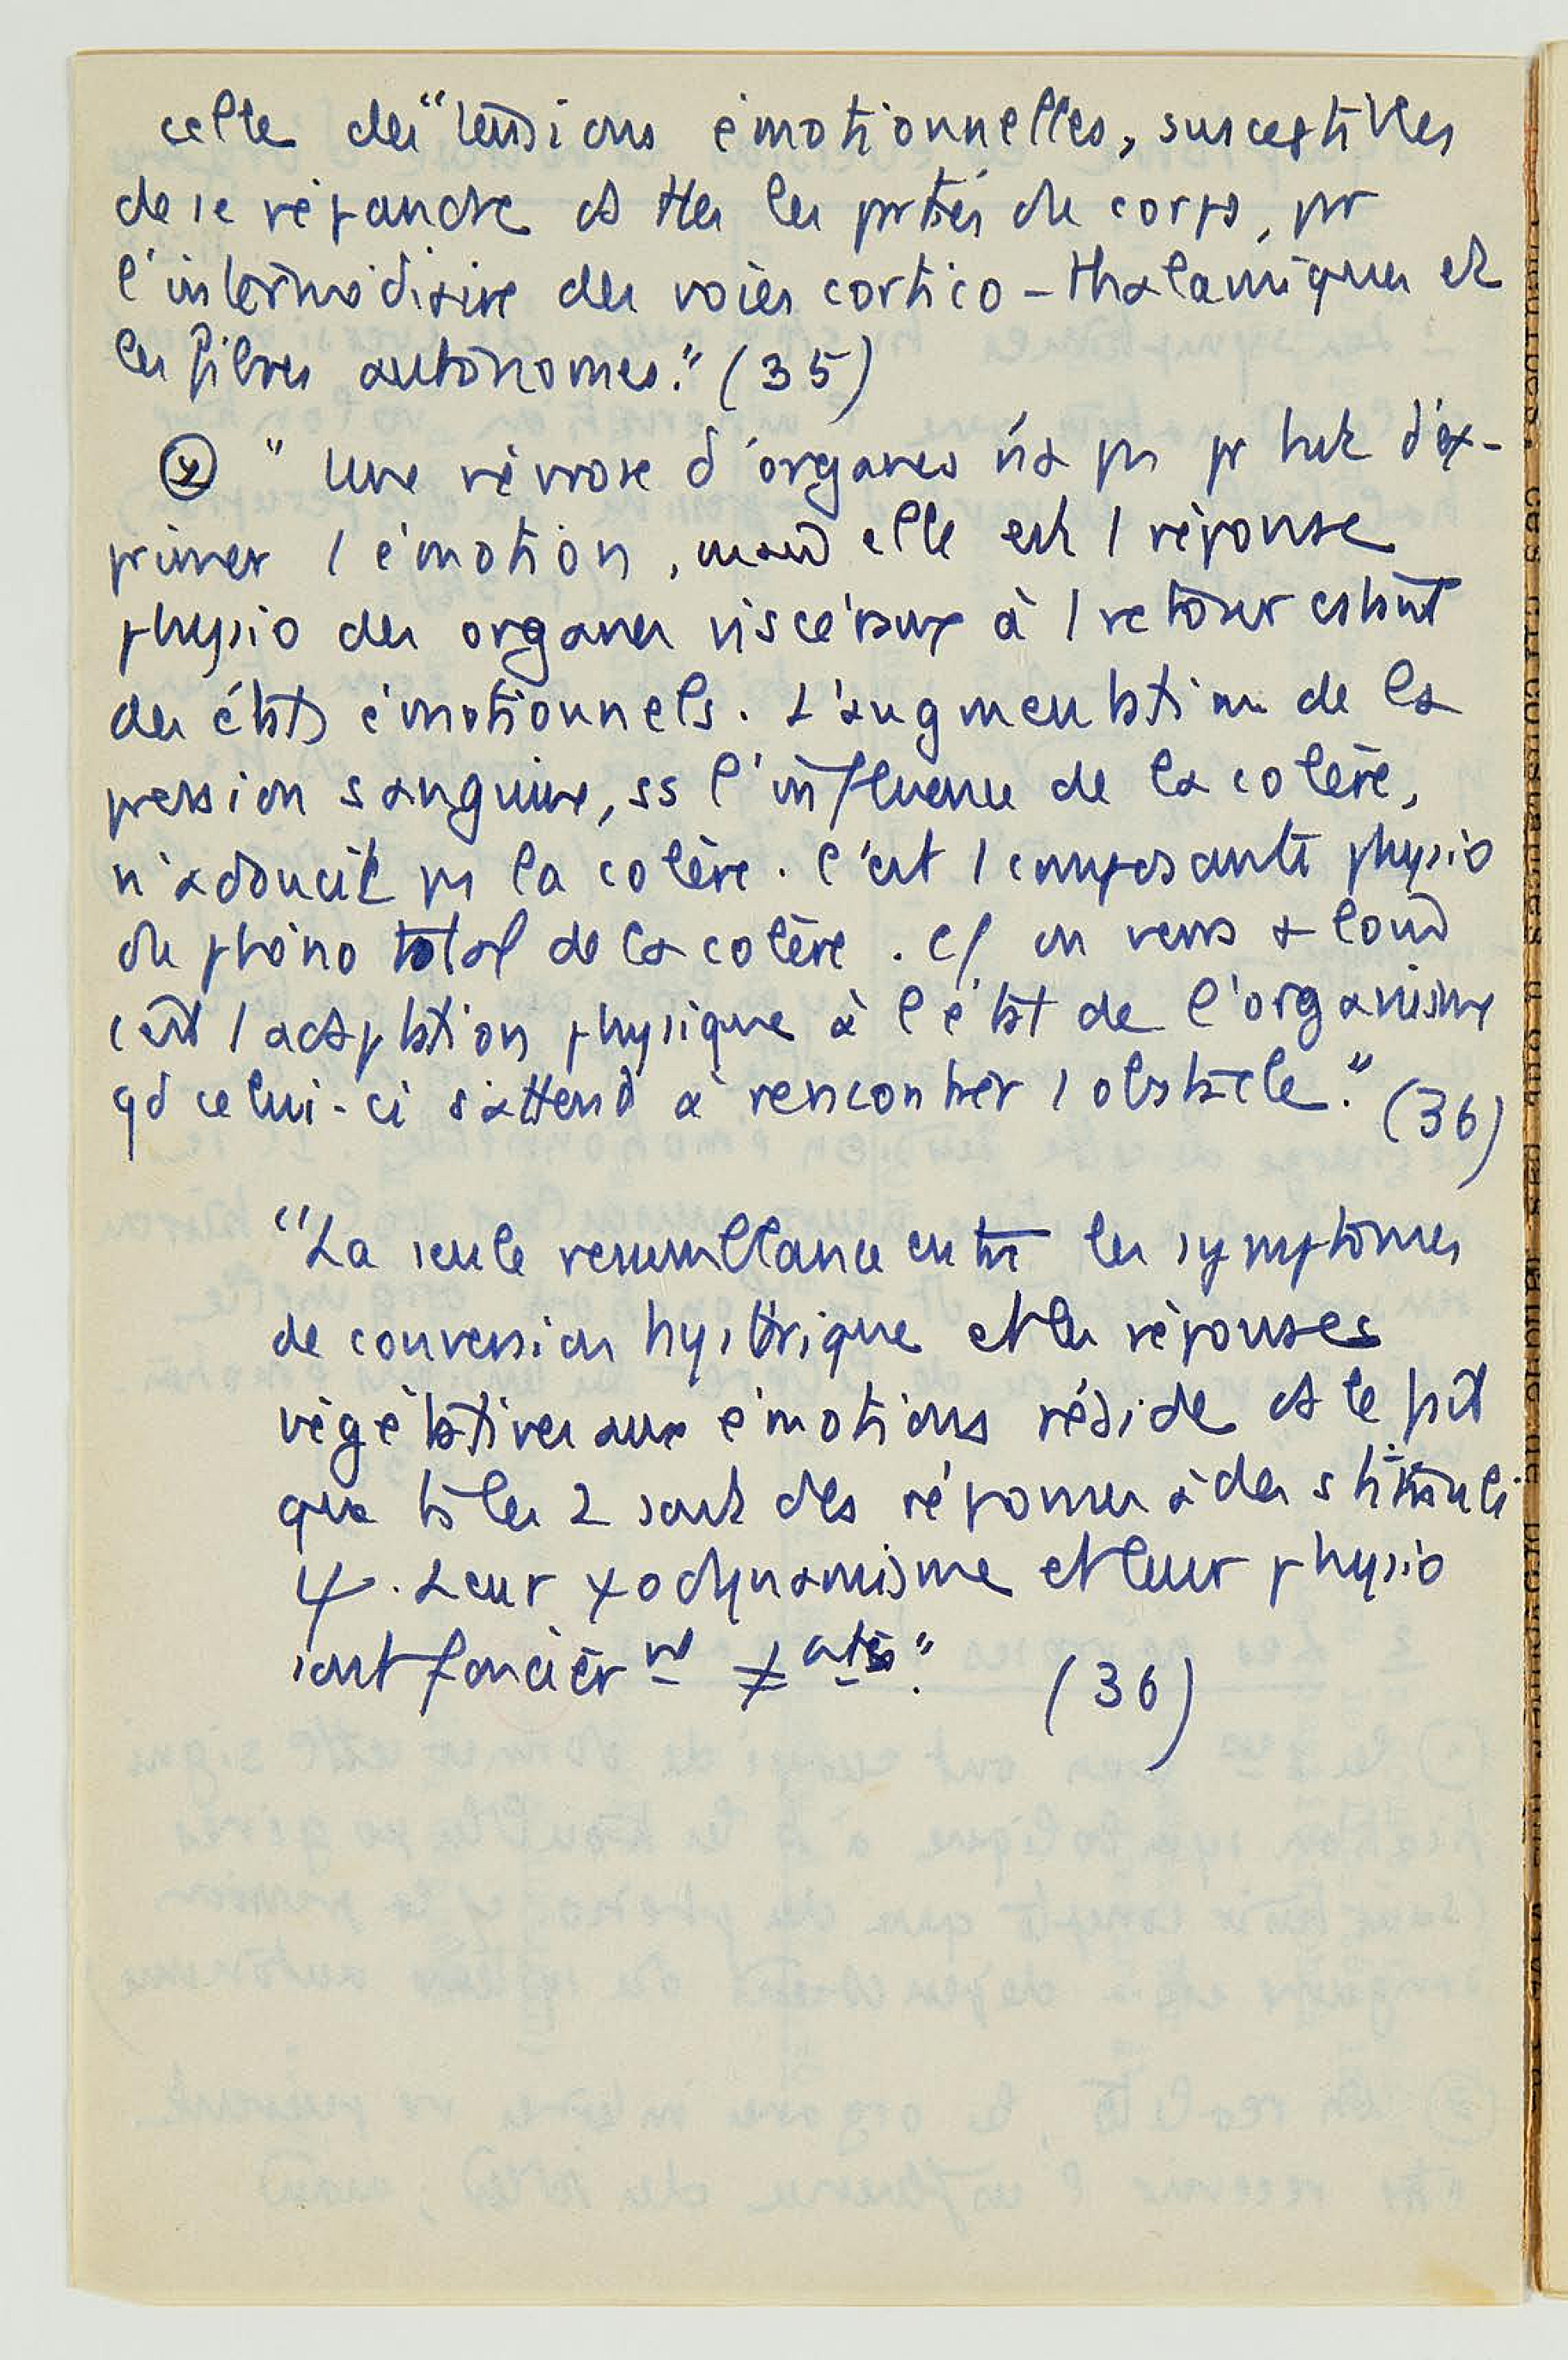 celle des "tensions émotionnelles, susceptibles
de se répandre ds ttes les prties du corps, pr
l'intermédiaire des voies cortico-thalamiques et
les fibres autonomes." (35)
"Une névrose d'organes n'a ps pr but d'ex-
primer 1 émotion, mais elle est 1 réponse
physio des organes viscéraux à 1 retour cstant
des états émotionnels. L'augmentation de la
pression sanguine, ss l'influence de la colère,
n'adoucit ps la colère. C'est 1 composante physio
du phéno total de la colère. C/ on verra + loin
c'est 1 adaptation physique à l'état de l'organisme
qd celui-ci s'attend à rencontrer 1 obstacle." (36)
"La seule ressemblance entre les symptômes
de conversion hystérique et les réponses
végétatives aux émotions réside ds le fait
que ts les 2 sont des réponses à des stimuli
ψ. Leur ψodynamisme et leur physio
sont foncièrmt ≠ents." (36)